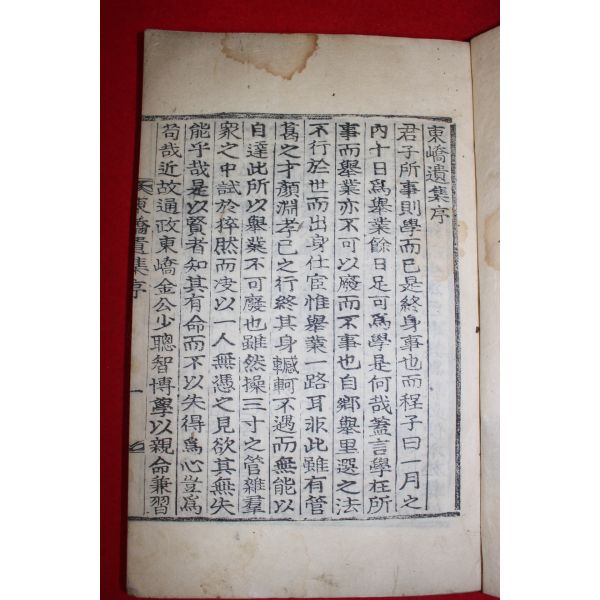 東嶠遺集序
君子所事則學而已是終身事也而程子曰一月之
內十日爲舉業餘日足可爲學是何哉蓋言學在所
事而舉業亦不可以廢而不事也自鄉舉里選之法
不行於世而出身仕宦惟舉業一路耳非此雖有管
葛之才顏淵孝己之行終其身轗軻不遇而無能以
自達此所以舉業不可廢也雖然操三寸之管雜羣
衆之中試於猝然而没以一人無憑之見欲其無失
能乎哉是以賢者知其有命而不以失得爲心豈爲
苟哉近故通政東嶠金公少聰智博學以親命兼習
東嶠遺集序
一